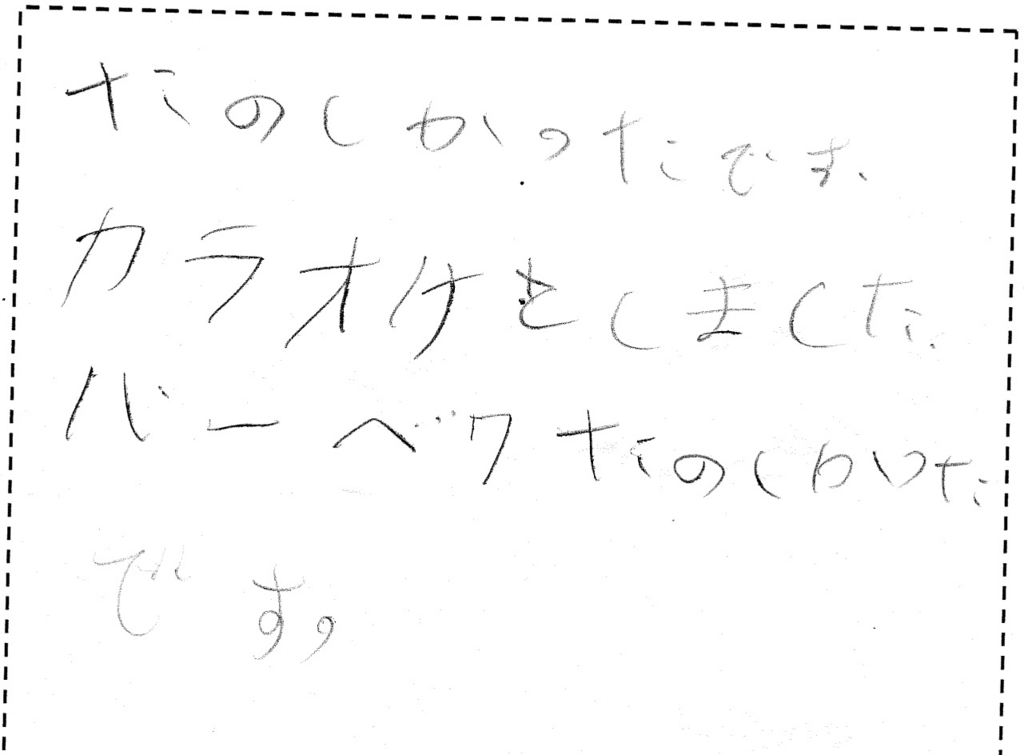 たのしかったです.
カラオケをしました.
バーベクたのしかった
です。